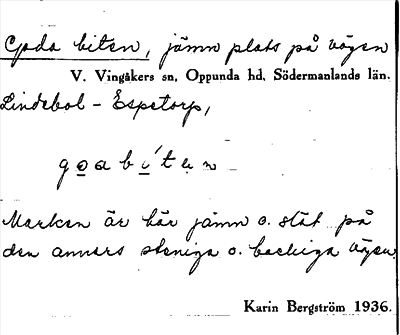 Goda biten, jämn plats på vägen
V. Vingåkers sn, Oppunda hd, Södermanlands län.
Lindebol - Espetorp,
goabi´ten
Marken är här jämn o. slät på
den annars steniga o. backiga vägen.
Karin Bergström 1936.